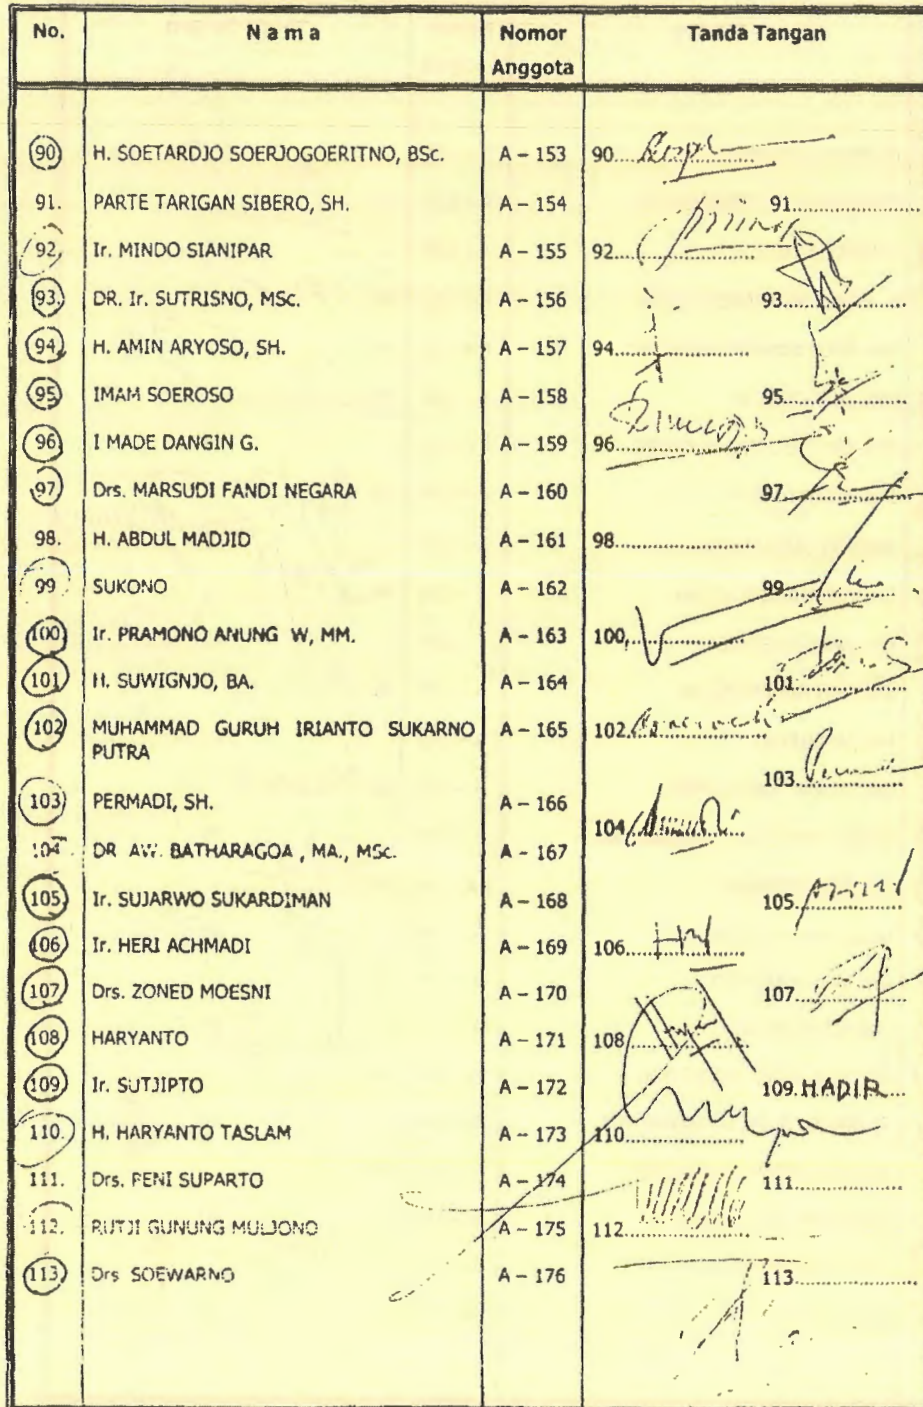 No. N a m a Nomor Anggota Tanda Tangan
90 H. SOETARDJO SOERJOGOERITNO, BSc. A – 153 90
91. PARTE TARIGAN SIBERO, SH. A – 154 91
92. Ir. MINDO SIANIPAR A – 155 92
93. DR. Ir. SUTRISNO, MSc. A – 156 93
94. H. AMIN ARYOSO, SH. A – 157 94
95 IMAM SOEROSO A – 158 95
96 I MADE DANGIN G. A – 159 96
97 Drs. MARSUDI FANDI NEGARA A – 160 97
98. H. ABDUL MADJID A – 161 98
99 SUKONO A – 162 99
100 Ir. PRAMONO ANUNG W, MM. A – 163 100
101 H. SUWIGNJO, BA. A – 164 101
102 MUHAMMAD GURUH IRIANTO SUKARNO A – 165 102
PUTRA
103 PERMADI, SH. A – 166 103
104 DR AW. BATHARAGOA , MA., MSc. A – 167 104
105 Ir. SUJARWO SUKARDIMAN A – 168 105
106 Ir. HERI ACHMADI A – 169 106
107 Drs. ZONED MOESNI A – 170 107
108 HARYANTO A – 171 108
109 Ir. SUTJIPTO A – 172 109. HADIR
110. H. HARYANTO TASLAM A – 173 110
111. Drs. PENI SUPARTO A – 174 111
112. RUTJI GUNUNG MULJONO A – 175 112
113 Drs SOEWARNO A – 176 113